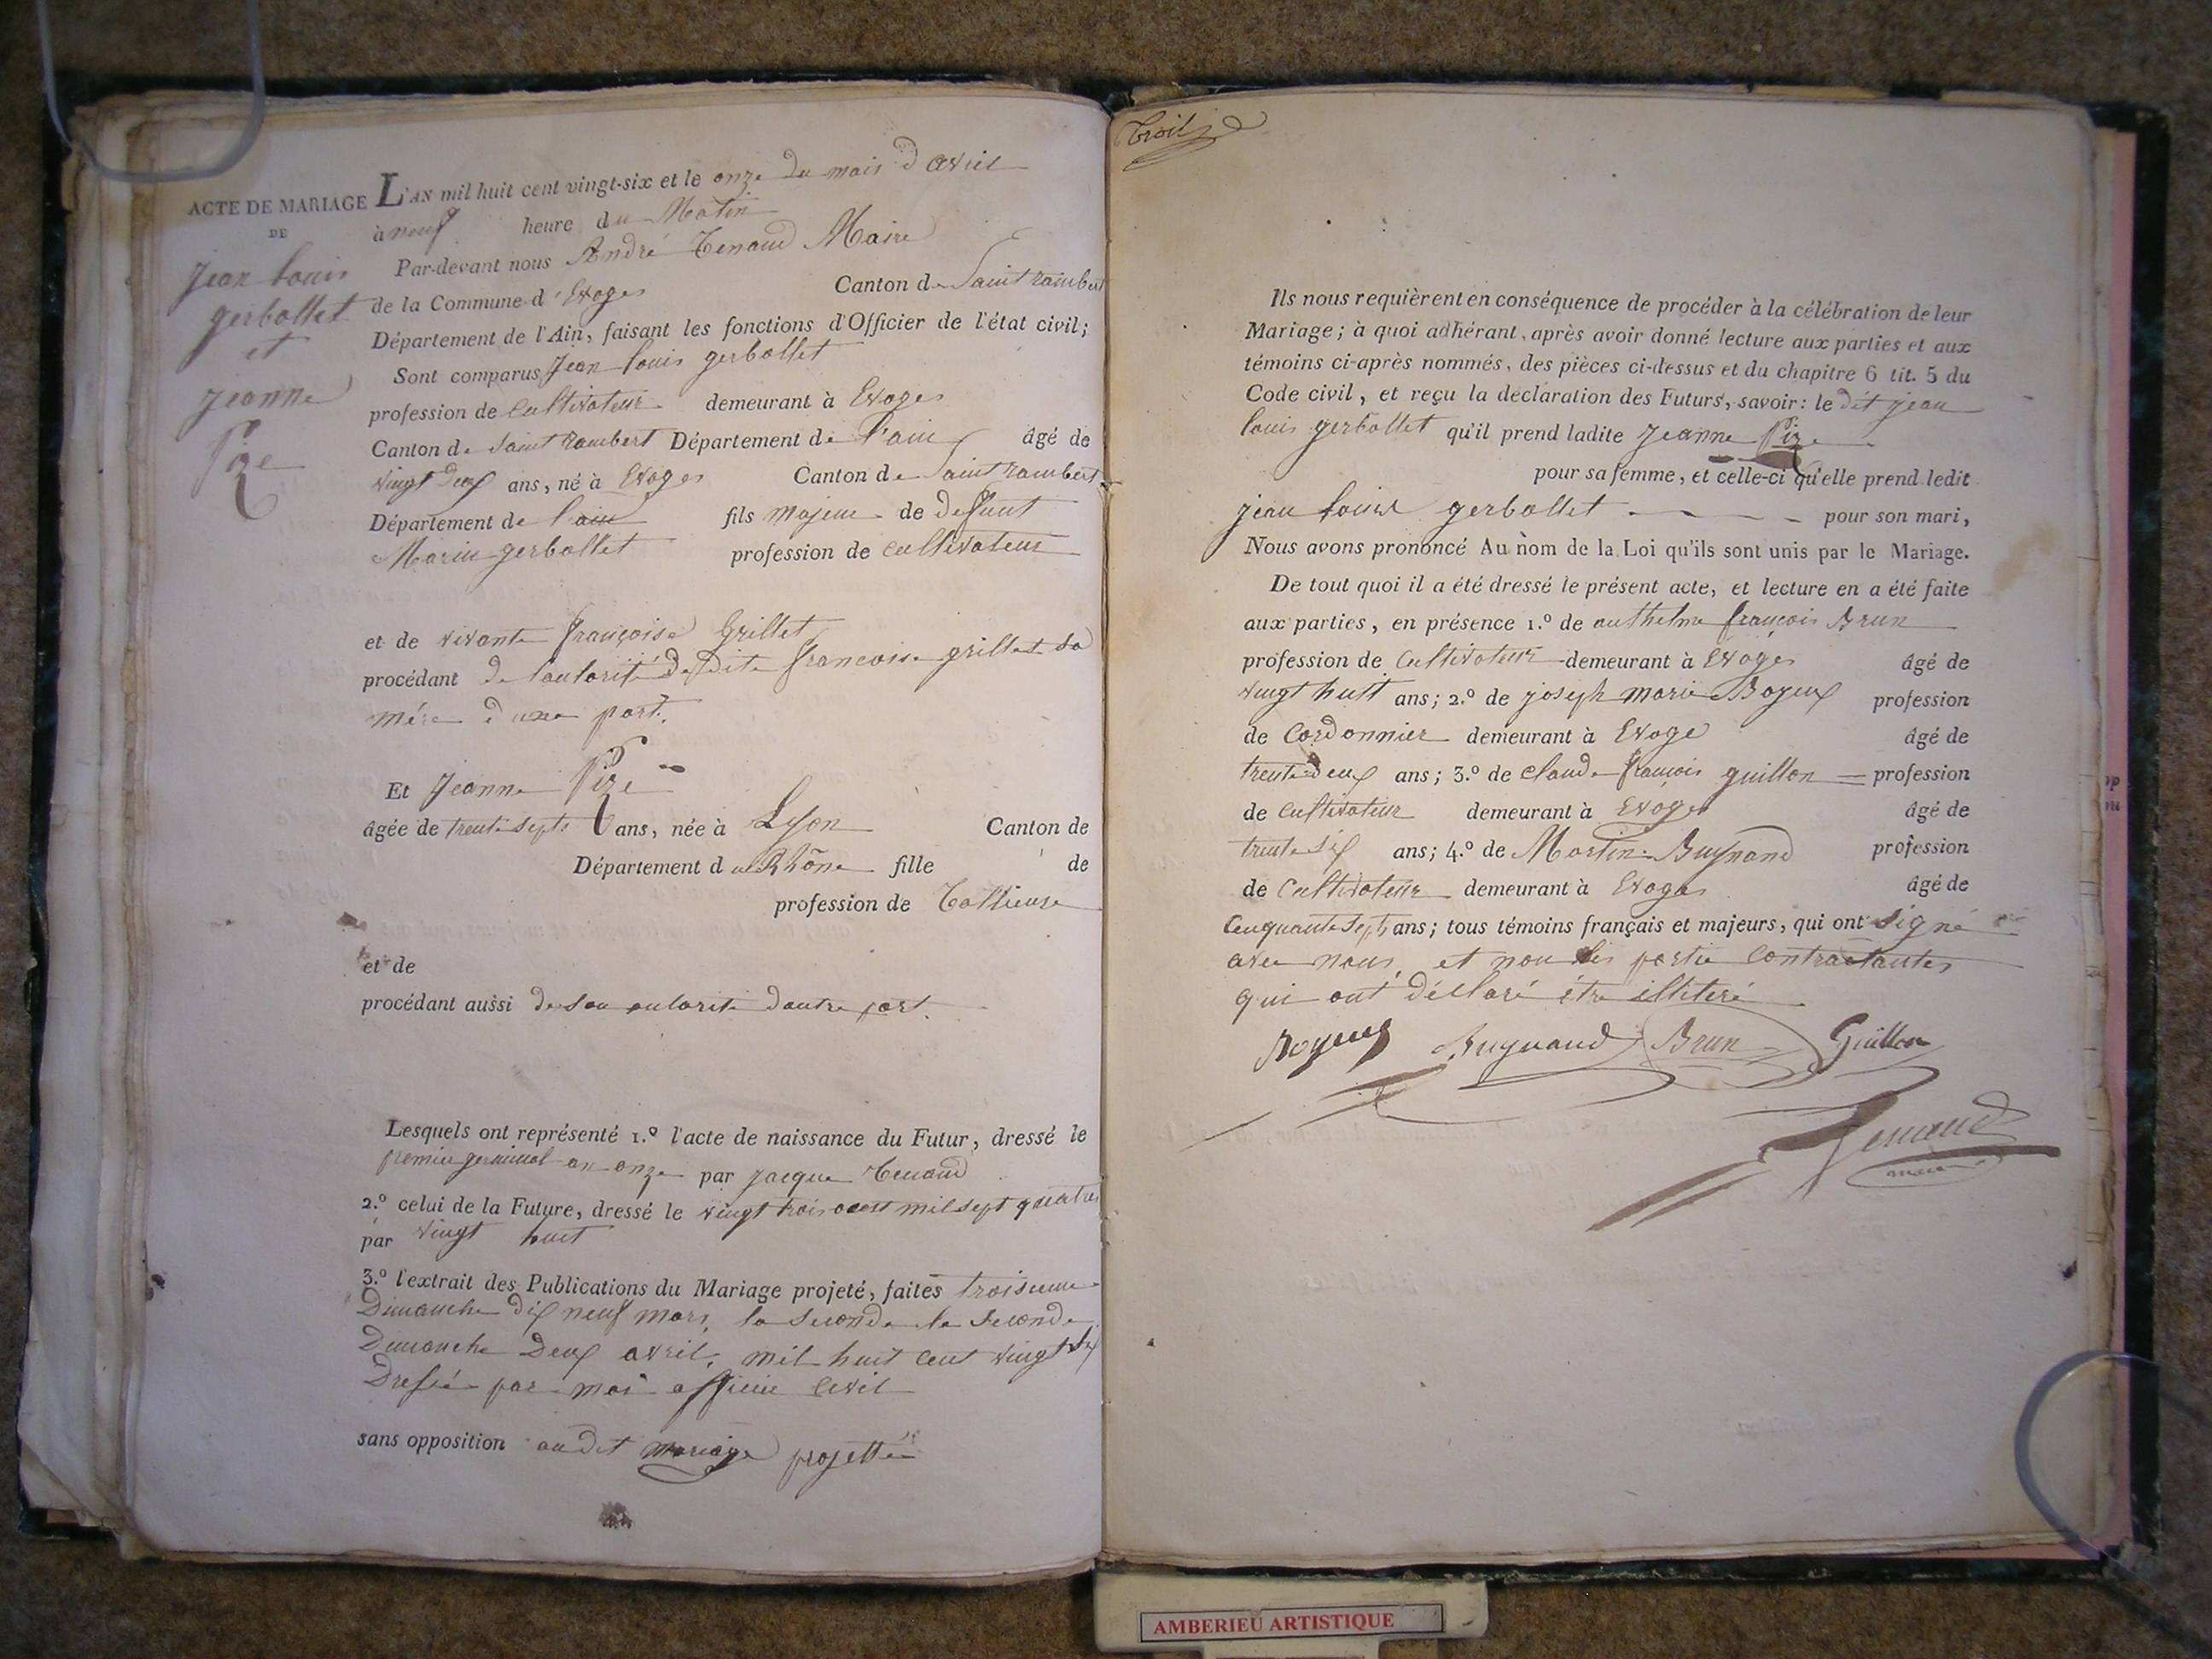 ACTE DE MARIAGE
DE
Jean Louis
gerbollet
et
Jeanne
Pize
L'AN mil huit cent vingt-six et le onze du mois d avril
à neuf heure du Matin
Par-devant nous André Tenand Maire
de la Commune d'Evoges Canton de Saint rambert
Département de l'Ain, faisant les fonctions d'Officier de l'état civil;
Sont comparus Jean Louis gerbollet
profession de Cultivateur demeurant à Evoges
Canton de Saint rambert Département de l'ain âgé de
vingt deux ans, né à Evoges Canton de Saint rambert
Département de l'ain fils majeur de deffunt
Marin gerbollet profession de Cultivateur
et de vivante françoise Grillet
procédant de l'autorité de dite francoise grillet sa
mére d'une part.
Et Jeanne Pize
âgée de trente septs ans, née à Lyon Canton de
Département du Rhône fille de
profession de Tallieuse
et de
procédant aussi de son autorité dautre part.
Lesquels ont représenté 1.º l'acte de naissance du Futur, dressé le
premier germinal an onze par jacque Tenand
2.º celui de la Future, dressé le vingt trois aout mil sept quatres
par vingt huit
3.º l'extrait des Publications du Mariage projeté, faites troisieme
Dimanche dix neuf mars, la seconde le seconde
Dimanche deux avril, mil huit cent vingt six
Dressé par moi officier Civil
sans opposition audit mariage projetté
Ils nous requièrent en conséquence de procéder à la célébration de leur
Mariage; à quoi adhérant, après avoir donné lecture aux parties et aux
témoins ci-après nommés, des pièces ci-dessus et du chapitre 6 tit. 5 du
Code civil, et reçu la déclaration des Futurs, savoir: le dit jean
louis gerbollet qu'il prend ladite Jeanne Pize
pour sa femme, et celle-ci qu'elle prend ledit
jean louis gerbollet pour son mari,
Nous avons prononcé Au nom de la Loi qu'ils sont unis par le Mariage.
De tout quoi il a été dressé le présent acte, et lecture en a été faite
aux parties, en présence 1.º de anthelme françois Brun
profession de Cultivateur demeurant à Evoges âgé de
vingt huit ans; 2.º de joseph marie Boyeux profession
de Cordonnier demeurant à Evoge âgé de
trente deux ans; 3.º de claude françois guillon profession
de Cultivateur demeurant à Evoges âgé de
trente six ans; 4.º de Martin Buynand profession
de Cultivateur demeurant à Evoges âgé de
Cinquante septs ans; tous témoins français et majeurs, qui ont signé
avec nous, et non les partie Contractantes
qui ont déclaré être illiteré
Boyeux Buynand Brun Guillon
Tenand
maire
AMBERIEU ARTISTIQUE